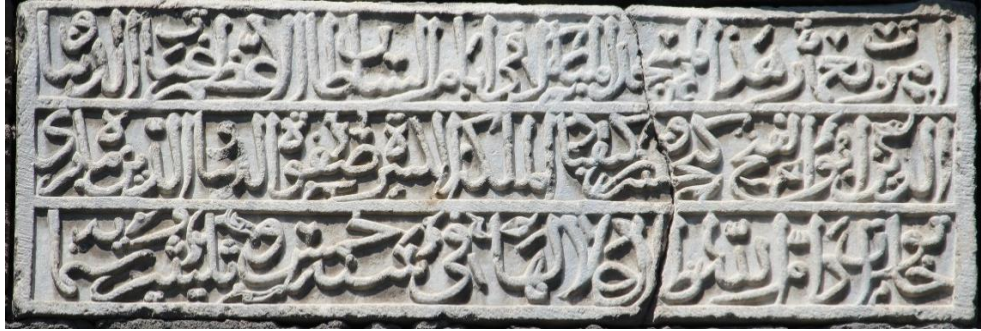 امرت بعمارة هذا المسجد المبارك في ايام السلطان الاعظم غياث الدنيا
والدين ابو الفتح كيخسرو بن كيقباد الملكة الكبيرة صفوة الدنيا والدين ماه بري
خاتون ادام الله في سنة خمس وثلثين